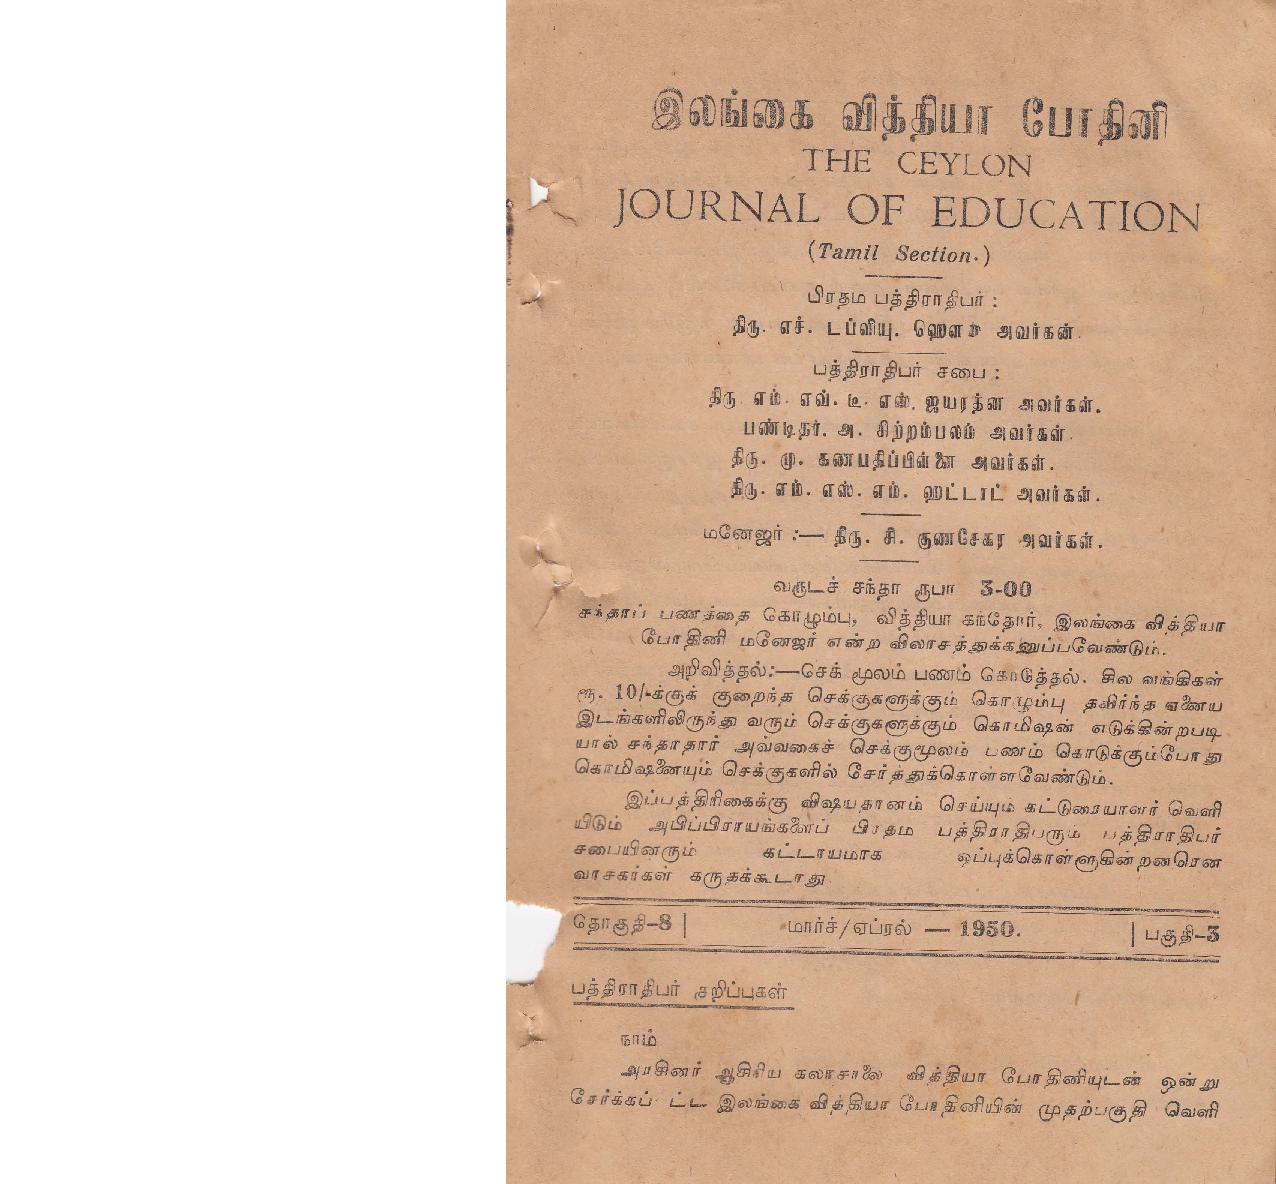 இலங்கை வித்தியா போதினி
THE CEYLON
JOURNAL OF EDUCATION
(Tamil Section.)
பிரதம பத்திராதிபர் :
திரு. எச். டப்ளியு. ஹௌ அவர்கள்.
பத்திராதிபர் சபை :
திரு எம். எவ். டீ. எஸ். ஜயரத்ன அவர்கள்.
பண்டிதர். அ. சிற்றம்பலம் அவர்கள்.
திரு. மு. கணபதிப்பிள்ளை அவர்கள்.
திரு. எம். எஸ். எம். ஹட்டாட் அவர்கள்.
மனேஜர் :— திரு. சி. குணசேகர அவர்கள்.
வருடச் சந்தா ரூபா 3-00
சந்தாப் பணத்தை கொழும்பு, வித்தியா கந்தோர், இலங்கை வித்தியா
போதினி மனேஜர் என்ற விலாசத்துக்கனுப்பவேண்டும்.
அறிவித்தல்:—செக் மூலம் பணம் கொடுத்தல். சில வங்கிகள்
ரூ. 10/-க்குக் குறைந்த செக்குகளுக்கும் கொழும்பு தவிர்ந்த ஏனைய
இடங்களிலிருந்து வரும் செக்குகளுக்கும் கொமிஷன் எடுக்கின்றபடி
யால் சந்தாதார் அவ்வகைச் செக்குமூலம் பணம் கொடுக்கும்போது
கொமிஷனையும் செக்குகளில் சேர்த்துக்கொள்ளவேண்டும்.
இப்பத்திரிகைக்கு விஷயதானம் செய்யும் கட்டுரையாளர் வெளி
யிடும் அபிப்பிராயங்களைப் பிரதம பத்திராதிபரும் பத்திராதிபர்
சபையினரும் கட்டாயமாக ஒப்புக்கொள்ளுகின்றனரென
வாசகர்கள் கருதக்கூடாது
தொகுதி–8 | மார்ச்/ஏப்ரல் — 1950. | பகுதி–3
பத்திராதிபர் குறிப்புகள்
நாம்
அரசினர் ஆசிரிய கலாசாலை வித்தியா போதினியுடன் ஒன்று
சேர்க்கப் ட்ட இலங்கை வித்தியா போதினியின் முதற்பகுதி வெளி